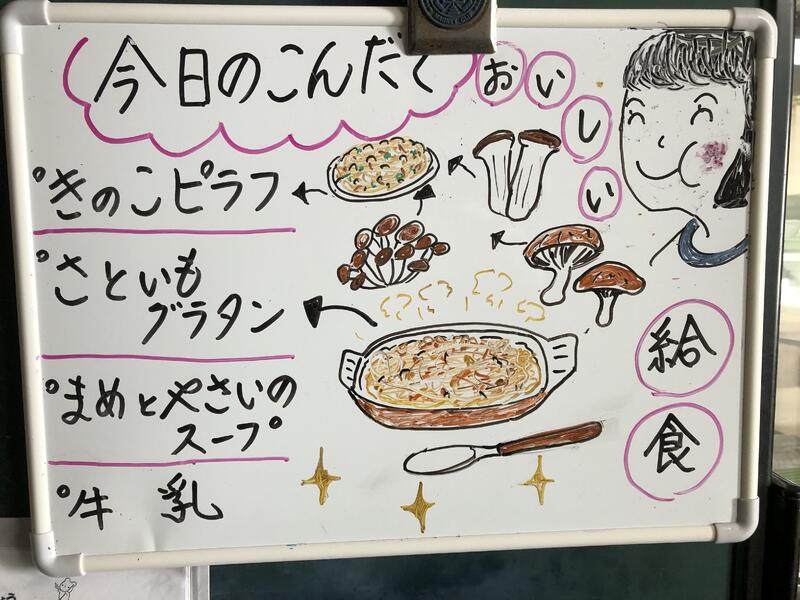 今日のこんだて
おいしい
きのこピラフ
さといも
グラタン
まめとやさいの
スープ
牛乳
給
食